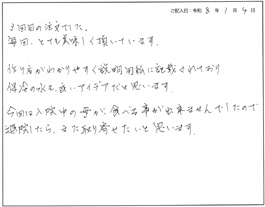 ご記入日：令和 8 年 1 月 4 日
3回目の注文でした。
毎回、とても美味しく頂いています。
作り方がわかりやすく説明用紙に記載されており
保冷の水も良いアイデアだと思います。
今回は入院中の母が、食べる事が出来ませんでしたので
退院したら、また取り寄せたいと思います。